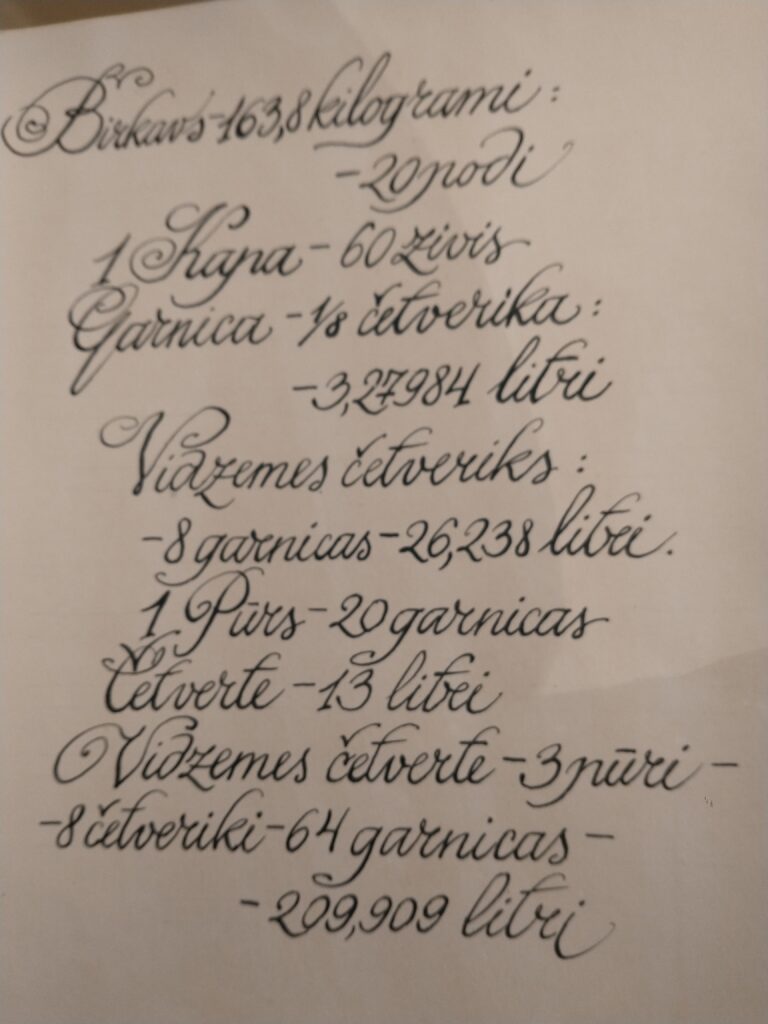 Birkavs-163,8 kilogrami:
-20 podi
1 Kapa - 60 zivis
Garnica - 1/8 četverika:
-3,27984 litri
Vidzemes četveriks:
-8 garnicas-26,238 litri.
1 Pūrs-20 garnicas
Četverte -13 litri
Vidzemes četverte -3 pūri -
-8 četveriki-64 garnicas -
-209,909 litri